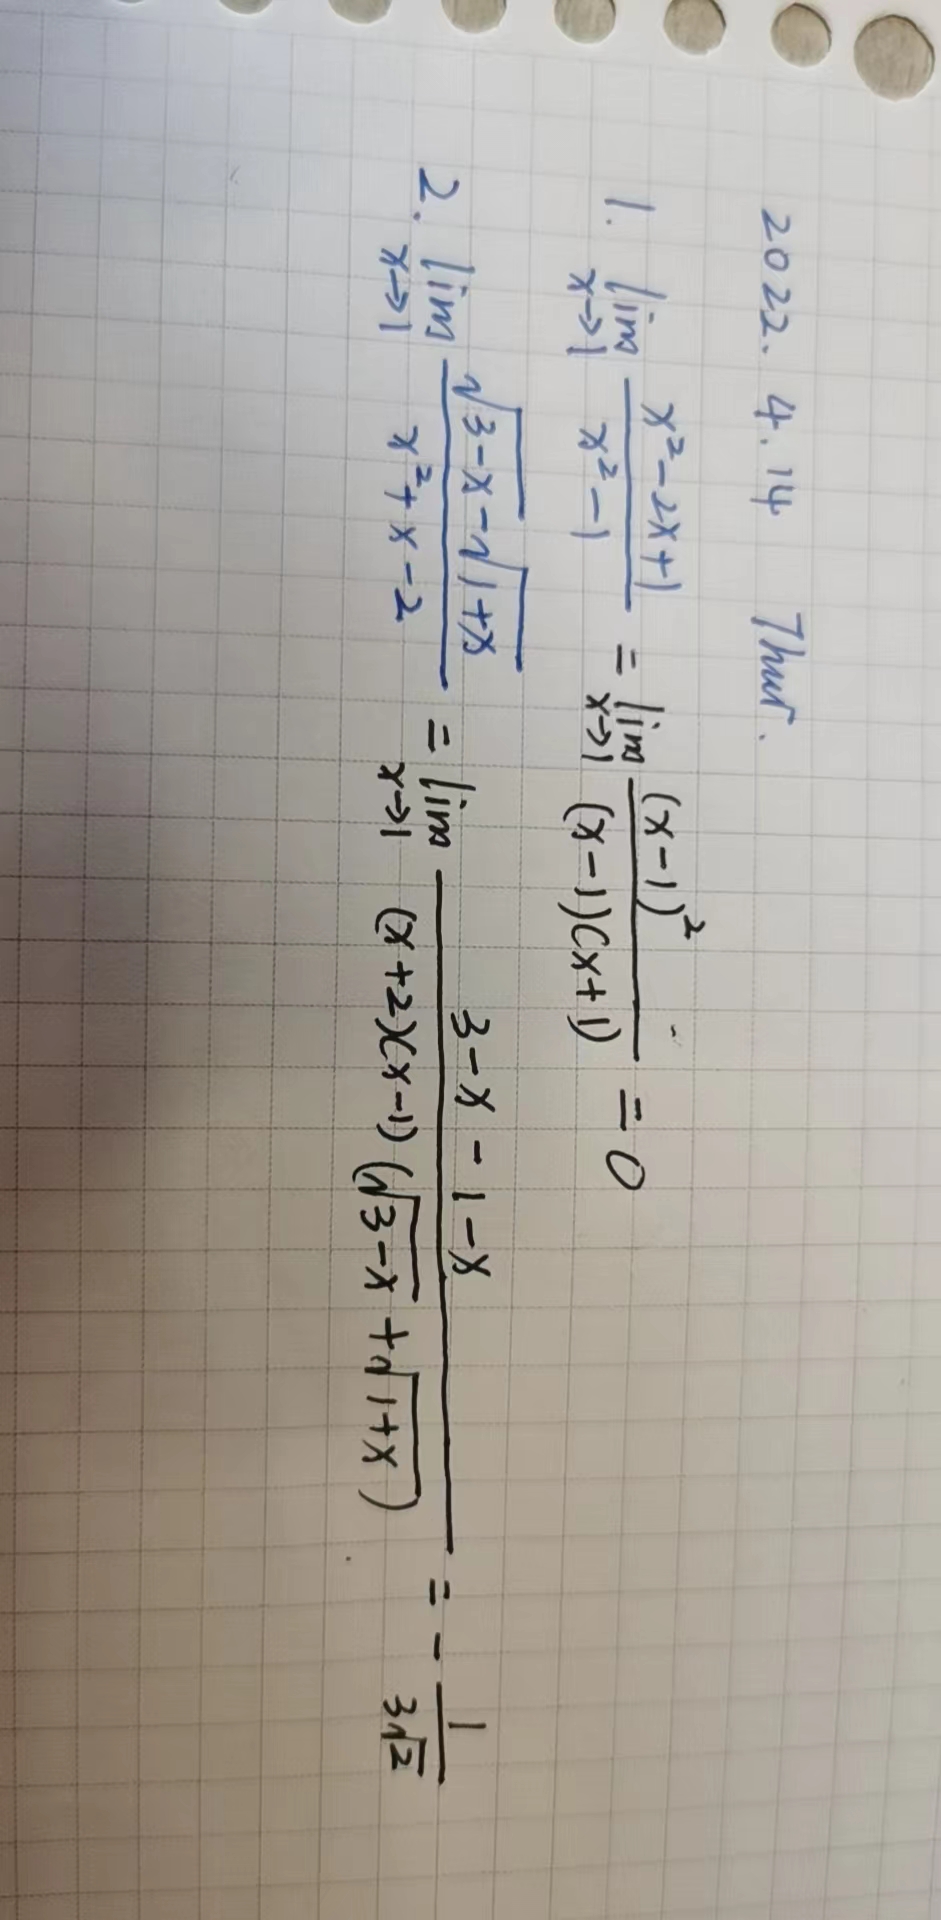 2022. 4. 14 Thur.
1. lim x→1 (x²-2x+1)/(x²-1) = lim x→1 (x-1)²/((x-1)(x+1)) = 0
2. lim x→1 (√(3-x)-√(1+x))/(x²+x-2) = lim x→1 (3-x-1-x)/((x+2)(x-1)(√(3-x)+√(1+x))) = -1/(3√2)